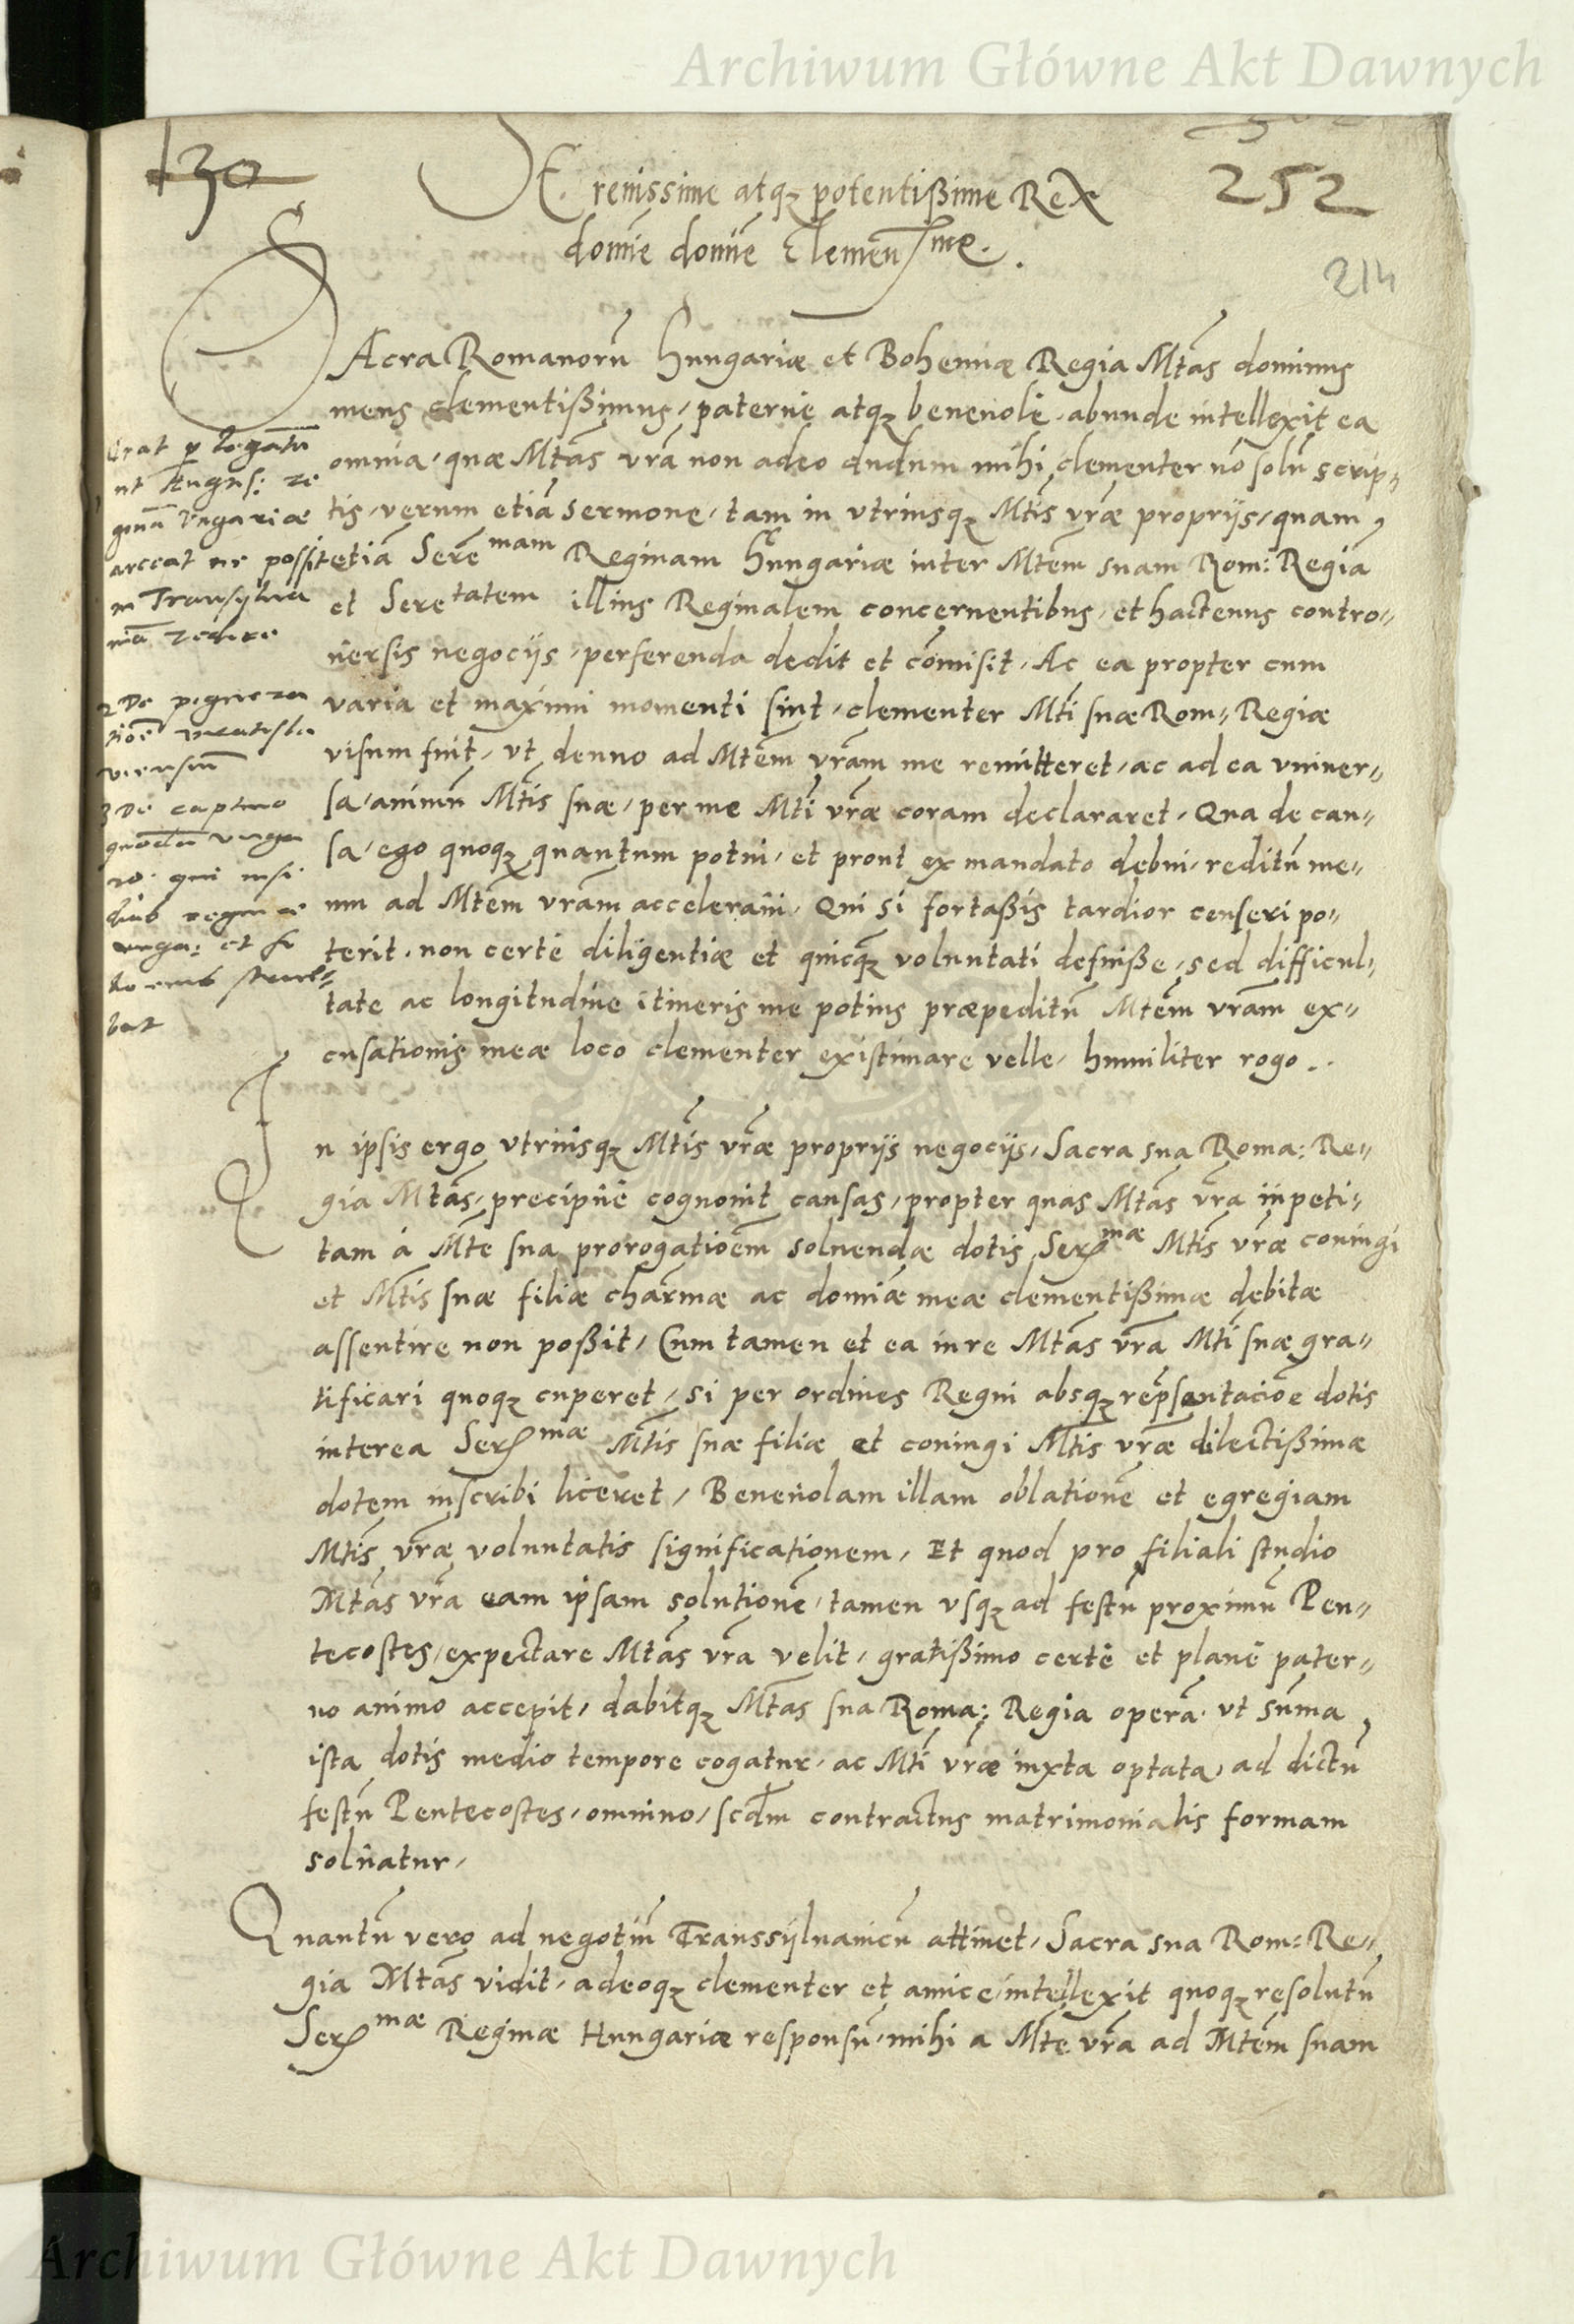 Archiwum Główne Akt Dawnych
130
252
214
SErenissime atq3 potentißime Rex
domĩe domĩe Clemenssme.
SAcra Romanorũ Hungariæ et Bohemiæ Regia Mtãs dominus
meus clementißimus, paternè atq3 beneuolè, abunde intellexit ea
omnia, quæ Mtãs vrã non adeo dudum mihi clementer nõ solũ scrip-
tis, verum etiã sermone, tam in vtriusq3 Mtis vrãe proprijs, quam
etiã Serẽmam Reginam Hungariæ inter Mtẽm suam Rom: Regiã
et Seretatem illius Reginalem concernentibus, et hactenus contro-
uersis negocijs, perferenda dedit et cõmisit, Ac ea propter cum
varia et maximi momenti sint, clementer Mti suæ Rom- Regiæ
visum fuit, vt denuo ad Mtẽm vrãm me remitteret, ac ad ea vniuer-
sa, animũ Mtis suæ, per me Mti vrãe coram declararet, Qua de cau-
sa, ego quoq3 quantum potui, et prout ex mandato debui, reditũ me-
um ad Mtẽm vrãm acceleraui, Qui si fortaßis tardior censeri po-
terit, non certè diligentiæ et quicq3 voluntati defuiße, sed difficul-
tate ac longitudine itineris me potius præpeditũ Mtẽm vrãm ex-
cusationis meæ loco clementer existimare velle, humiliter rogo..
Erat p legatũ
ut August: re
ginã Vngariæ
arceat ne possit
in Transylua
niã redire
2 De pignora
tiõe
3 De captiuo
quodã vnga
ro qui insi
dias reginæ
vnga: et fi
lio eius struebat
In ipsis ergo vtriusq3 Mtis vrãe proprijs negocijs, Sacra sua Roma: Re-
gia Mtãs, precipuè cognouit causas, propter quas Mtãs vrã in peti-
tam à Mte sua prorogatioẽm soluendæ dotis Sermæ Mtis vrãe coniugi
et Mtis suæ filiæ charmæ ac domiæ meæ clementißimæ debitæ
assentire non poßit, Cum tamen et ea in re Mtãs vrã Mti suæ gra-
tificari quoq3 cuperet, si per ordines Regni absq3 repr̃sentaciõe dotis
interea Sermæ Mtis suæ filiæ et coniugi Mtis vrãe dilectißimæ
dotem inscribi liceret, Beneuolam illam oblationẽ et egregiam
Mtis vrãe voluntatis significationem, Et quod pro filiali studio
Mtãs vrã eam ipsam solutionẽ, tamen vsq3 ad festũ proximũ Pen-
tecostes, expectare Mtãs vrã velit, gratißimo certè et planè pater-
no animo accepit, dabitq3 Mtãs sua Roma: Regia operã, vt sũma
ista dotis medio tempore cogatur, ac Mti vrãe iuxta optata, ad dictũ
festũ Pentecostes, omnino, scdm contractus matrimonialis formam
soluatur,
Quantũ vero ad negotiũ Transsyluanicũ attinet, Sacra sua Rom: Re-
gia Mtãs vidit, adeoq3 clementer et amice intellexit quoq3 resolutũ
Sermæ Reginæ Hungariæ responsũ, mihi a Mte vrã ad Mtẽm suam
Archiwum Główne Akt Dawnych